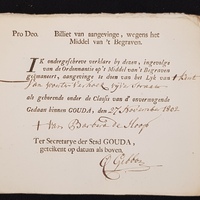 Pro Deo. Billet van aangevinge, wegens het
Middel van 't Begraven.
IK ondergeschreven verklare by desen, ingevolge
van de Ordonnantie op 't Middel van 't Begraven
geëmaneert, aangevinge te doen van het Lyk van 't Kint
Jan
als gehorende onder de Classis van d'onvermogende
Gedaan binnen GOUDA, den 27 November 1802
van Barbara de Hoop
Ter Secretarye der Stad GOUDA,
geteikent op datum als boven,